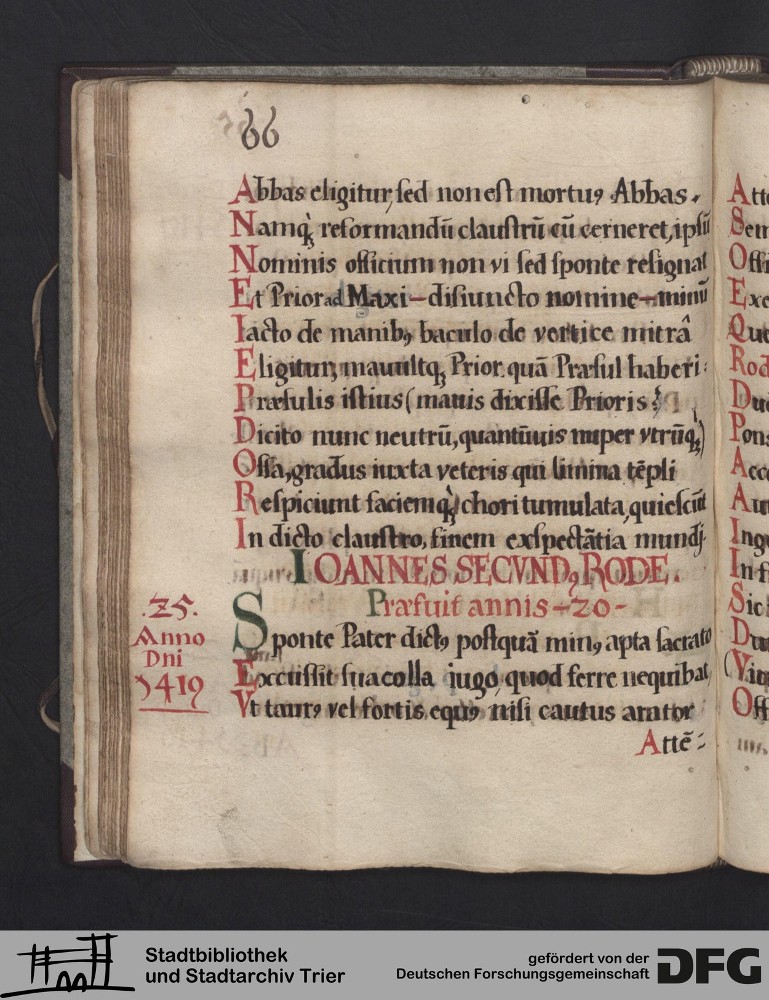 66
Abbas eligitur, sed non est mortuꝯ Abbas.
Namq́ꝫ reformandū claustrū cū cerneret, ipsū
Nominis officium non vi sed sponte resignat
Et Prior ad Maxi-disiuncto nomine-minū
Iacto de manibꝯ baculo de vertice mitrâ
Eligitur, mauultqꝫ Prior quā Præsul haberi:
Præsulis istius (mauis dixisse Prioris?
Dicito nunc neutrū, quantūuis nuper vtrūqꝫ)
Ossa, gradus iuxta veteris qui limina tēpli
Respiciunt faciemq́ꝫ chori tumulata, quiescūt
In dicto claustro, finem exspectātia mundj.
IOANNES SECVNDꝯ RODE.
Præfuit annis-20-
.25.
Anno
Dni
1419
Sponte Pater dictꝯ postquā minꝯ apta sacrato
Excussit sua colla jugo, quod ferre nequibat,
Vt taurꝯ vel fortis equꝯ nisi cautus arator
Attē-
Stadtbibliothek
und Stadtarchiv Trier
gefördert von der
Deutschen Forschungsgemeinschaft
DFG